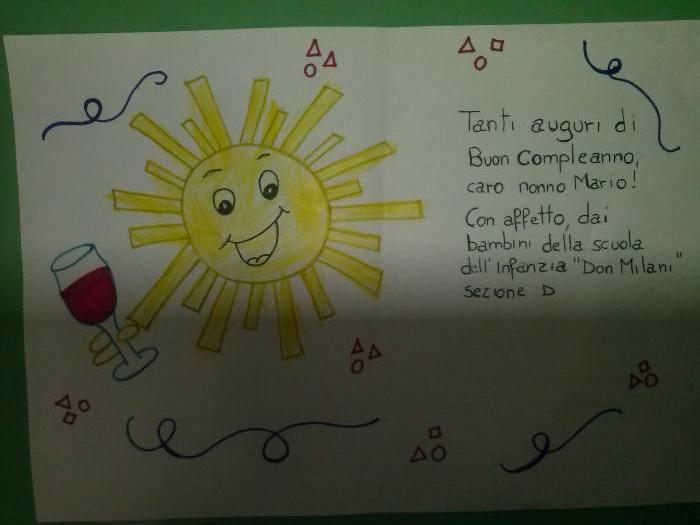 Tanti auguri di
Buon Compleanno,
caro nonno Mario!
Con affetto, dai
bambini della scuola
dell'Infanzia "Don Milani"
sezione D